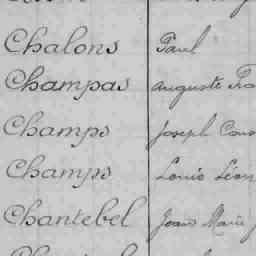 Chalons Paul
Champas Auguste
Champs Joseph
Champs Louis Léon
Chantebel Jean Marie